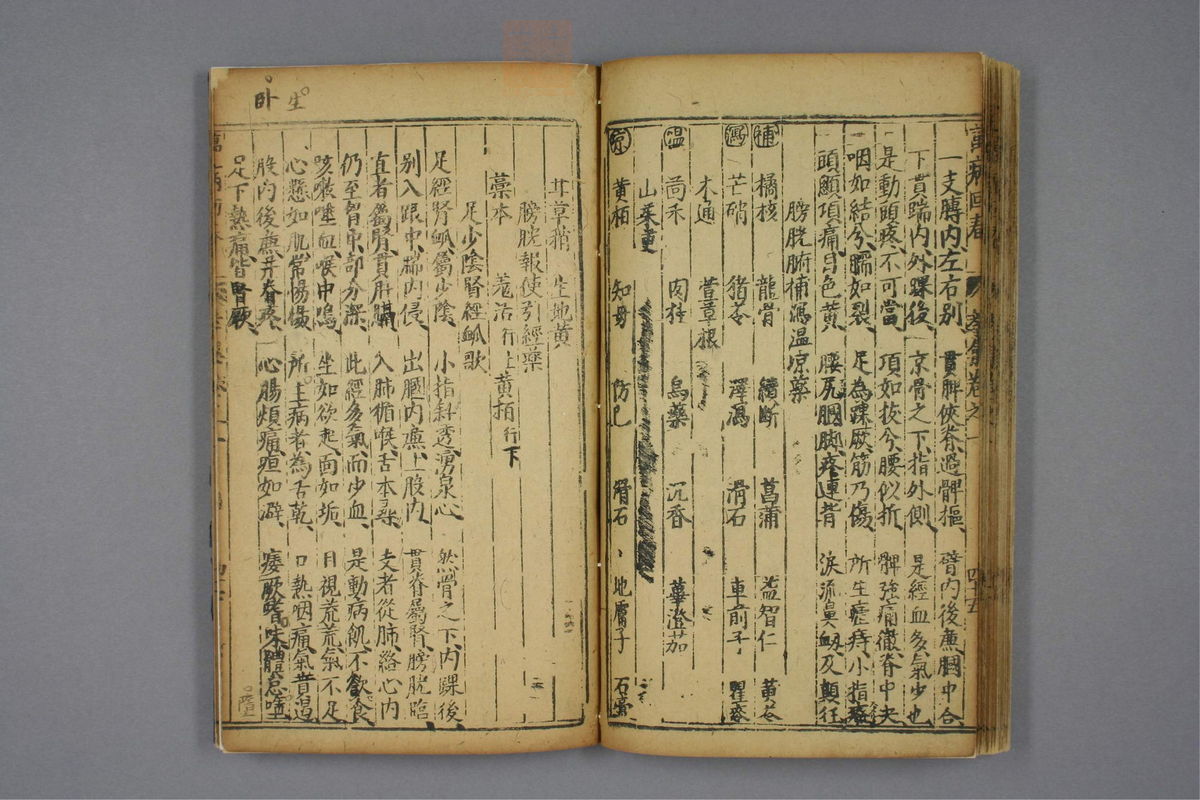 萬病回春 卷之一 四十五
一支膊內左右別 貫胛俠脊過髀樞 臂內後廉膕中合
下貫踹內外踝後 京骨之下指外側 是經血多氣少也
是動頭疼不可當 項如拔兮腰似折 髀強痛徹脊中央
膕如結兮腨如裂 足為踝厥筋乃傷 所生瘧痔小指廢
頭顖項痛目色黃 腰尻膕腳疼連背 淚流鼻衄及顛狂
膀胱腑補瀉溫凉藥
補 橘核 龍骨 續斷 菖蒲 益智仁 黃芩
瀉 芒硝 猪苓 澤瀉 滑石 車前子 瞿麥
木通 萱草根
溫 茴禾 肉桂 烏藥 沉香 蓽澄茄
山茱萸
凉 黃栢 知母 防已 滑石 地膚子 石膏
甘草稍 生地黃
膀胱報使引經藥
藁本 羌活 行上 黃栢 行下
足少陰腎經脈歌
足經腎脈屬少陰 小指斜透湧泉心 然骨之下內踝後
別入跟中腨內侵 出膕內廉上股內 貫脊屬腎膀胱臨
直者屬腎貫肝膈 入肺循喉舌本尋 支者從肺絡心內
仍至胷中部分深 此經多氣而少血 是動病飢不欲食
咳嗽唾血喉中鳴 坐如欲起面如垢 目視𥆨𥆨氣不足
心懸如飢常惕惕 所生病者為舌乾 口熱咽痛氣賁逼
股內後廉并脊疼 心腸煩痛疸如澼 痿厥嗜卧體怠惰
足下熱痛皆腎厥
卧 生